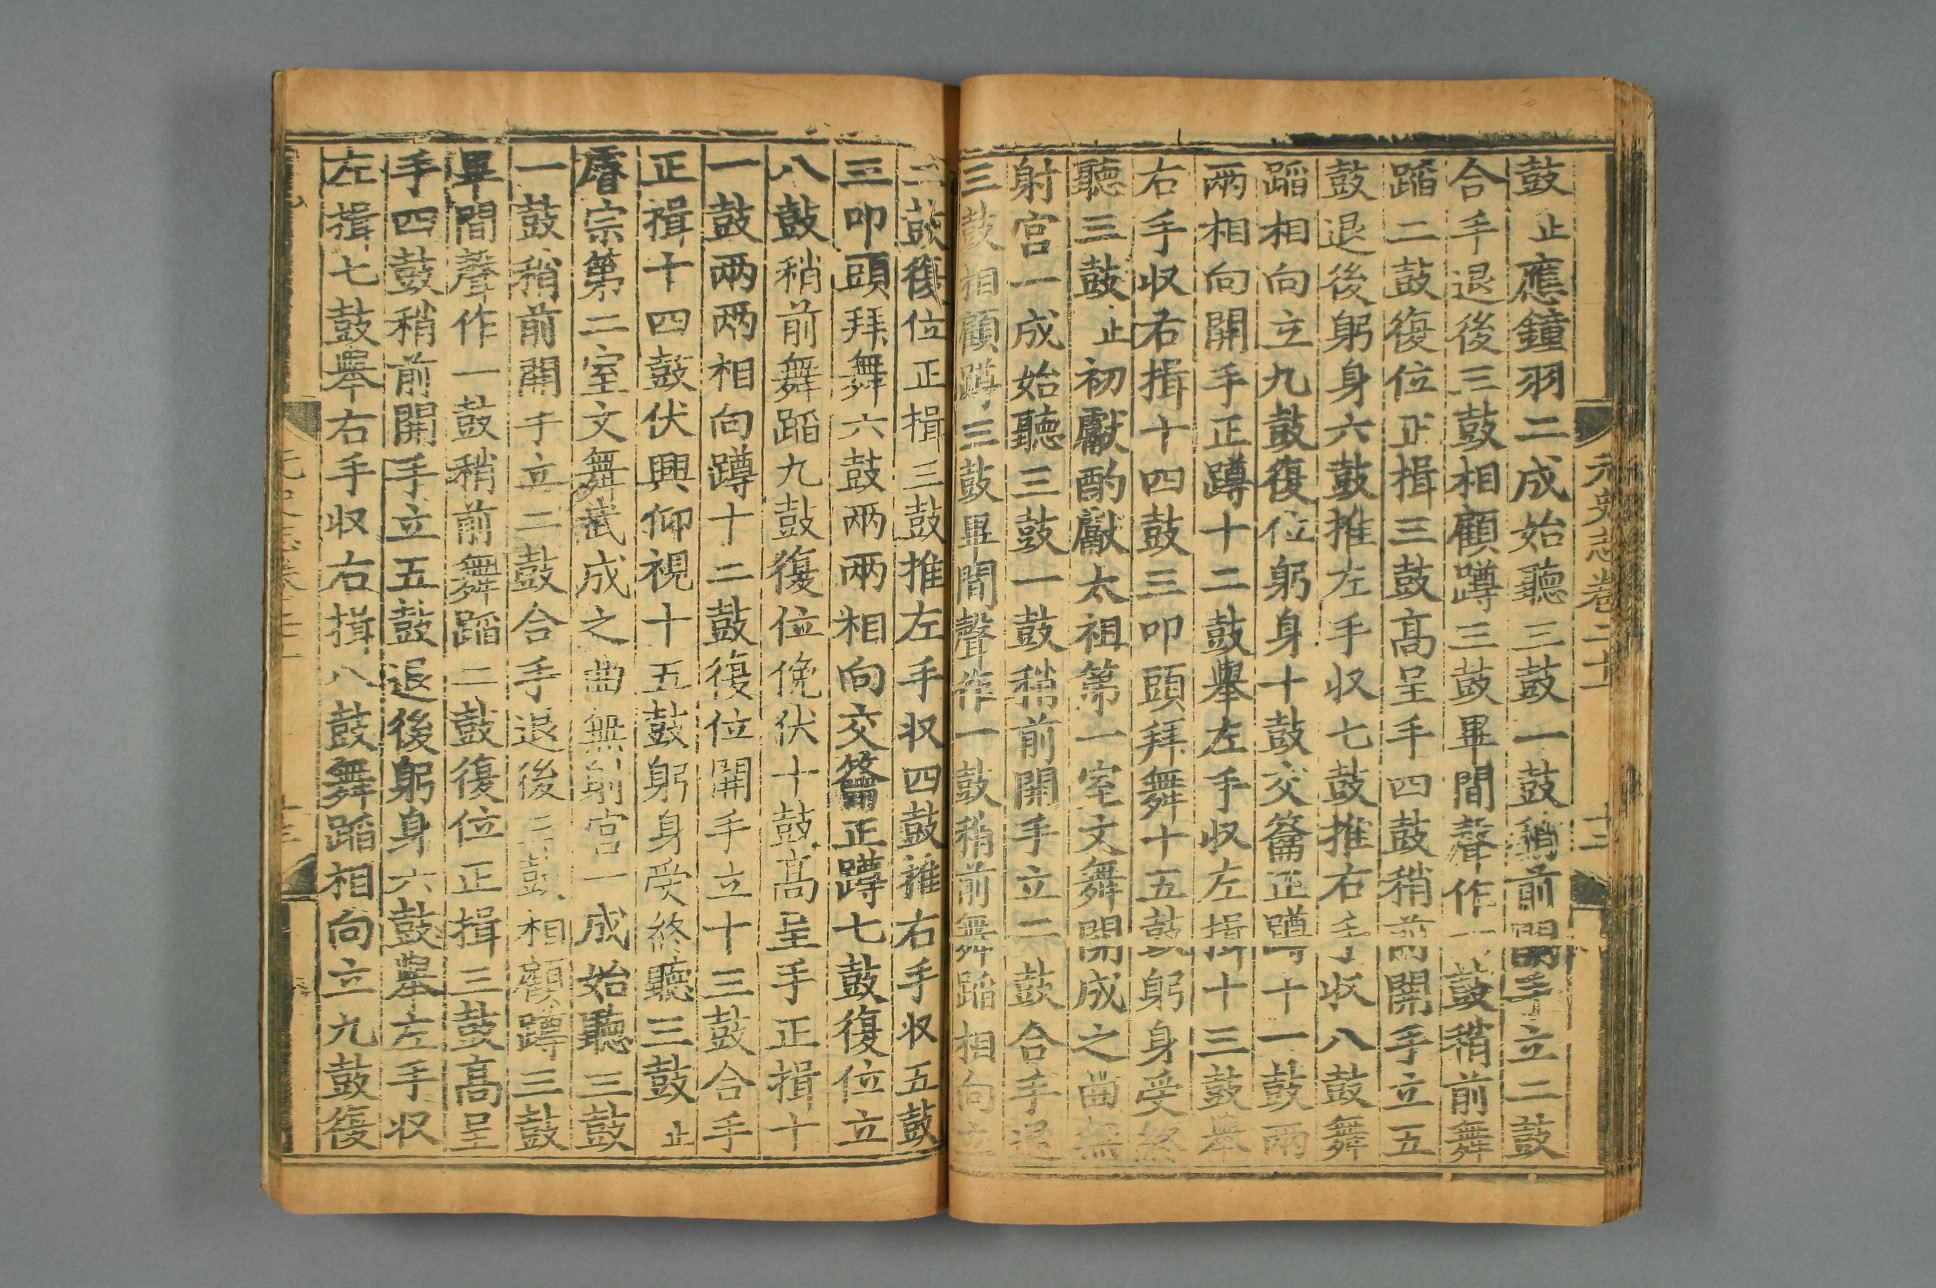 鼓止應鐘羽二成始聽三鼓一鼓稍前開手立二鼓
合手退後三鼓相顧蹲三鼓畢間聲作一鼓稍前舞
蹈二鼓復位正揖三鼓高呈手四鼓稍前開手立五
鼓退後躬身六鼓推左手收七鼓推右手收八鼓舞
蹈相向立九鼓復位躬身十鼓交籥正蹲十一鼓兩
兩相向開手正蹲十二鼓舉左手收左揖十三鼓舉
右手收右揖十四鼓三叩頭拜舞十五鼓躬身受終
聽三鼓止初獻酌獻太祖第一室文舞開成之曲無
射宮一成始聽三鼓一鼓稍前開手立二鼓合手退
三鼓相顧蹲三鼓畢間聲作一鼓稍前舞蹈相向立
二鼓復位正揖三鼓推左手收四鼓推右手收五鼓
三叩頭拜舞六鼓兩兩相向交籥正蹲七鼓復位立
八鼓稍前舞蹈九鼓復位俛伏十鼓高呈手正揖十
一鼓兩兩相向蹲十二鼓復位開手立十三鼓合手
正揖十四鼓伏興仰視十五鼓躬身受終聽三鼓止
睿宗第二室文舞武成之曲無射宮一成始聽三鼓
一鼓稍前開手立二鼓合手退後三鼓相顧蹲三鼓
畢間聲作一鼓稍前舞蹈二鼓復位正揖三鼓高呈
手四鼓稍前開手立五鼓退後躬身六鼓舉左手收
左揖七鼓舉右手收右揖八鼓舞蹈相向立九鼓復
元史志卷二十
十三